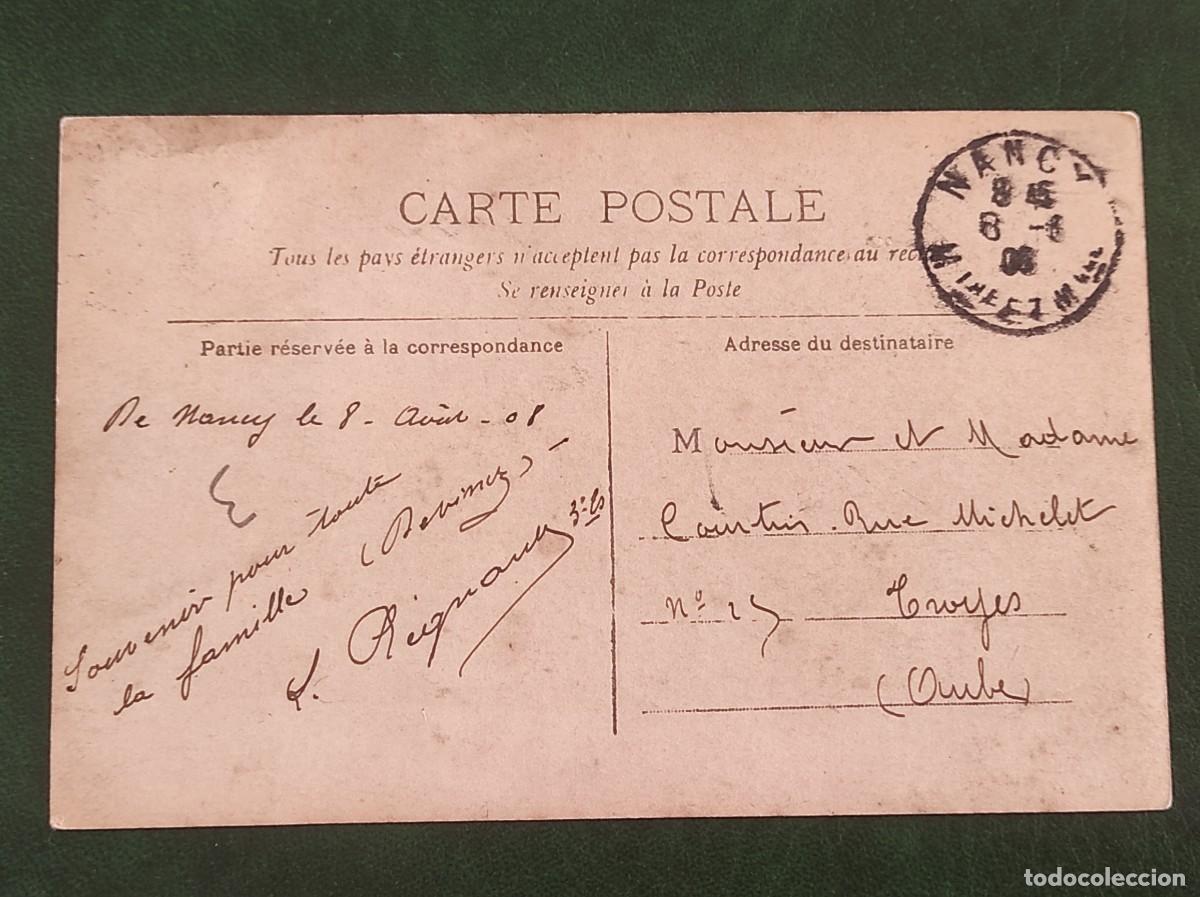 CARTE POSTALE
Tous les pays étrangers n'acceptent pas la correspondance au
Se renseigner à la Poste
NANCY
8 - 8
08
Partie réservée à la correspondance
Adresse du destinataire
De Nancy le 8 - Août - 08
Souvenir pour toute
la famille
Monsieur et Madame
Rue Michelet
N° 25 Troyes
(Aube)
todocoleccion